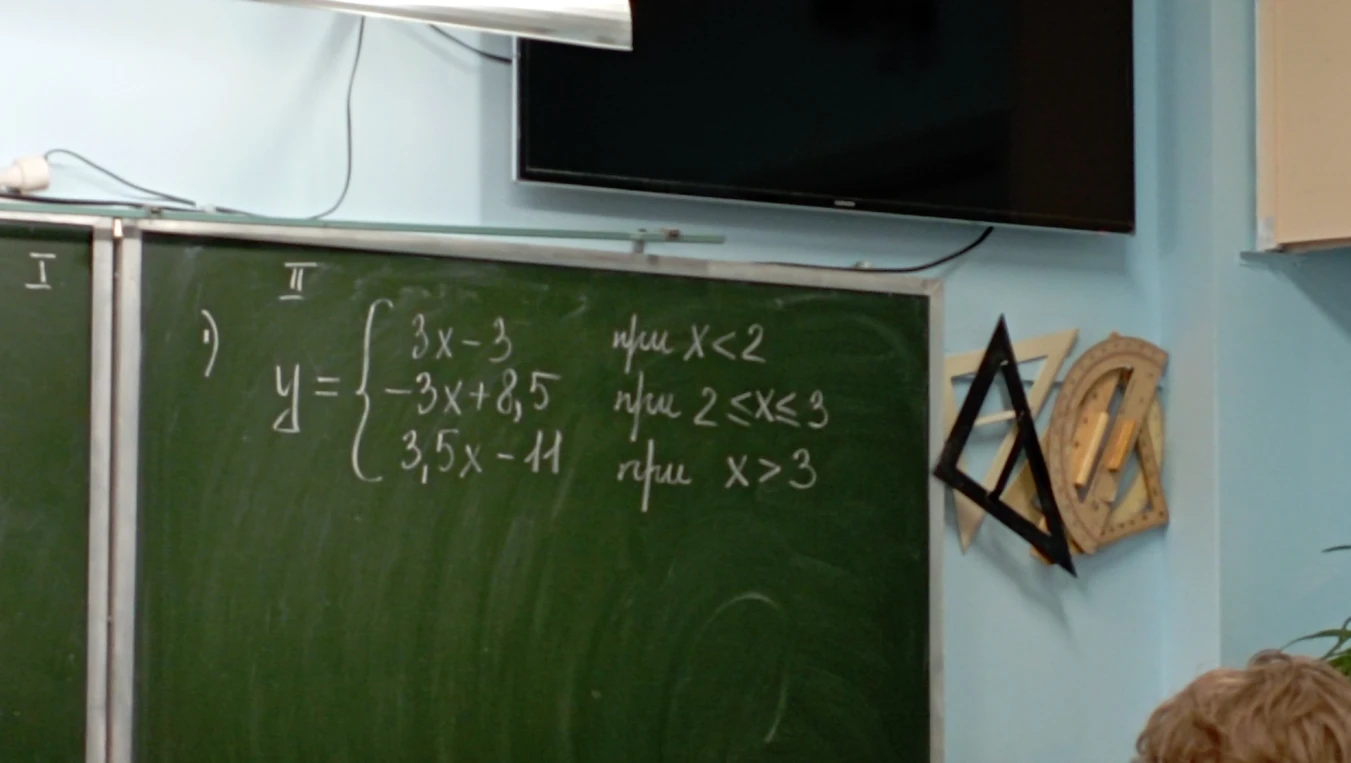 I
II
1)
y = { 3x - 3 при x < 2
-3x + 8,5 при 2 ≤ x ≤ 3
3,5x - 11 при x > 3